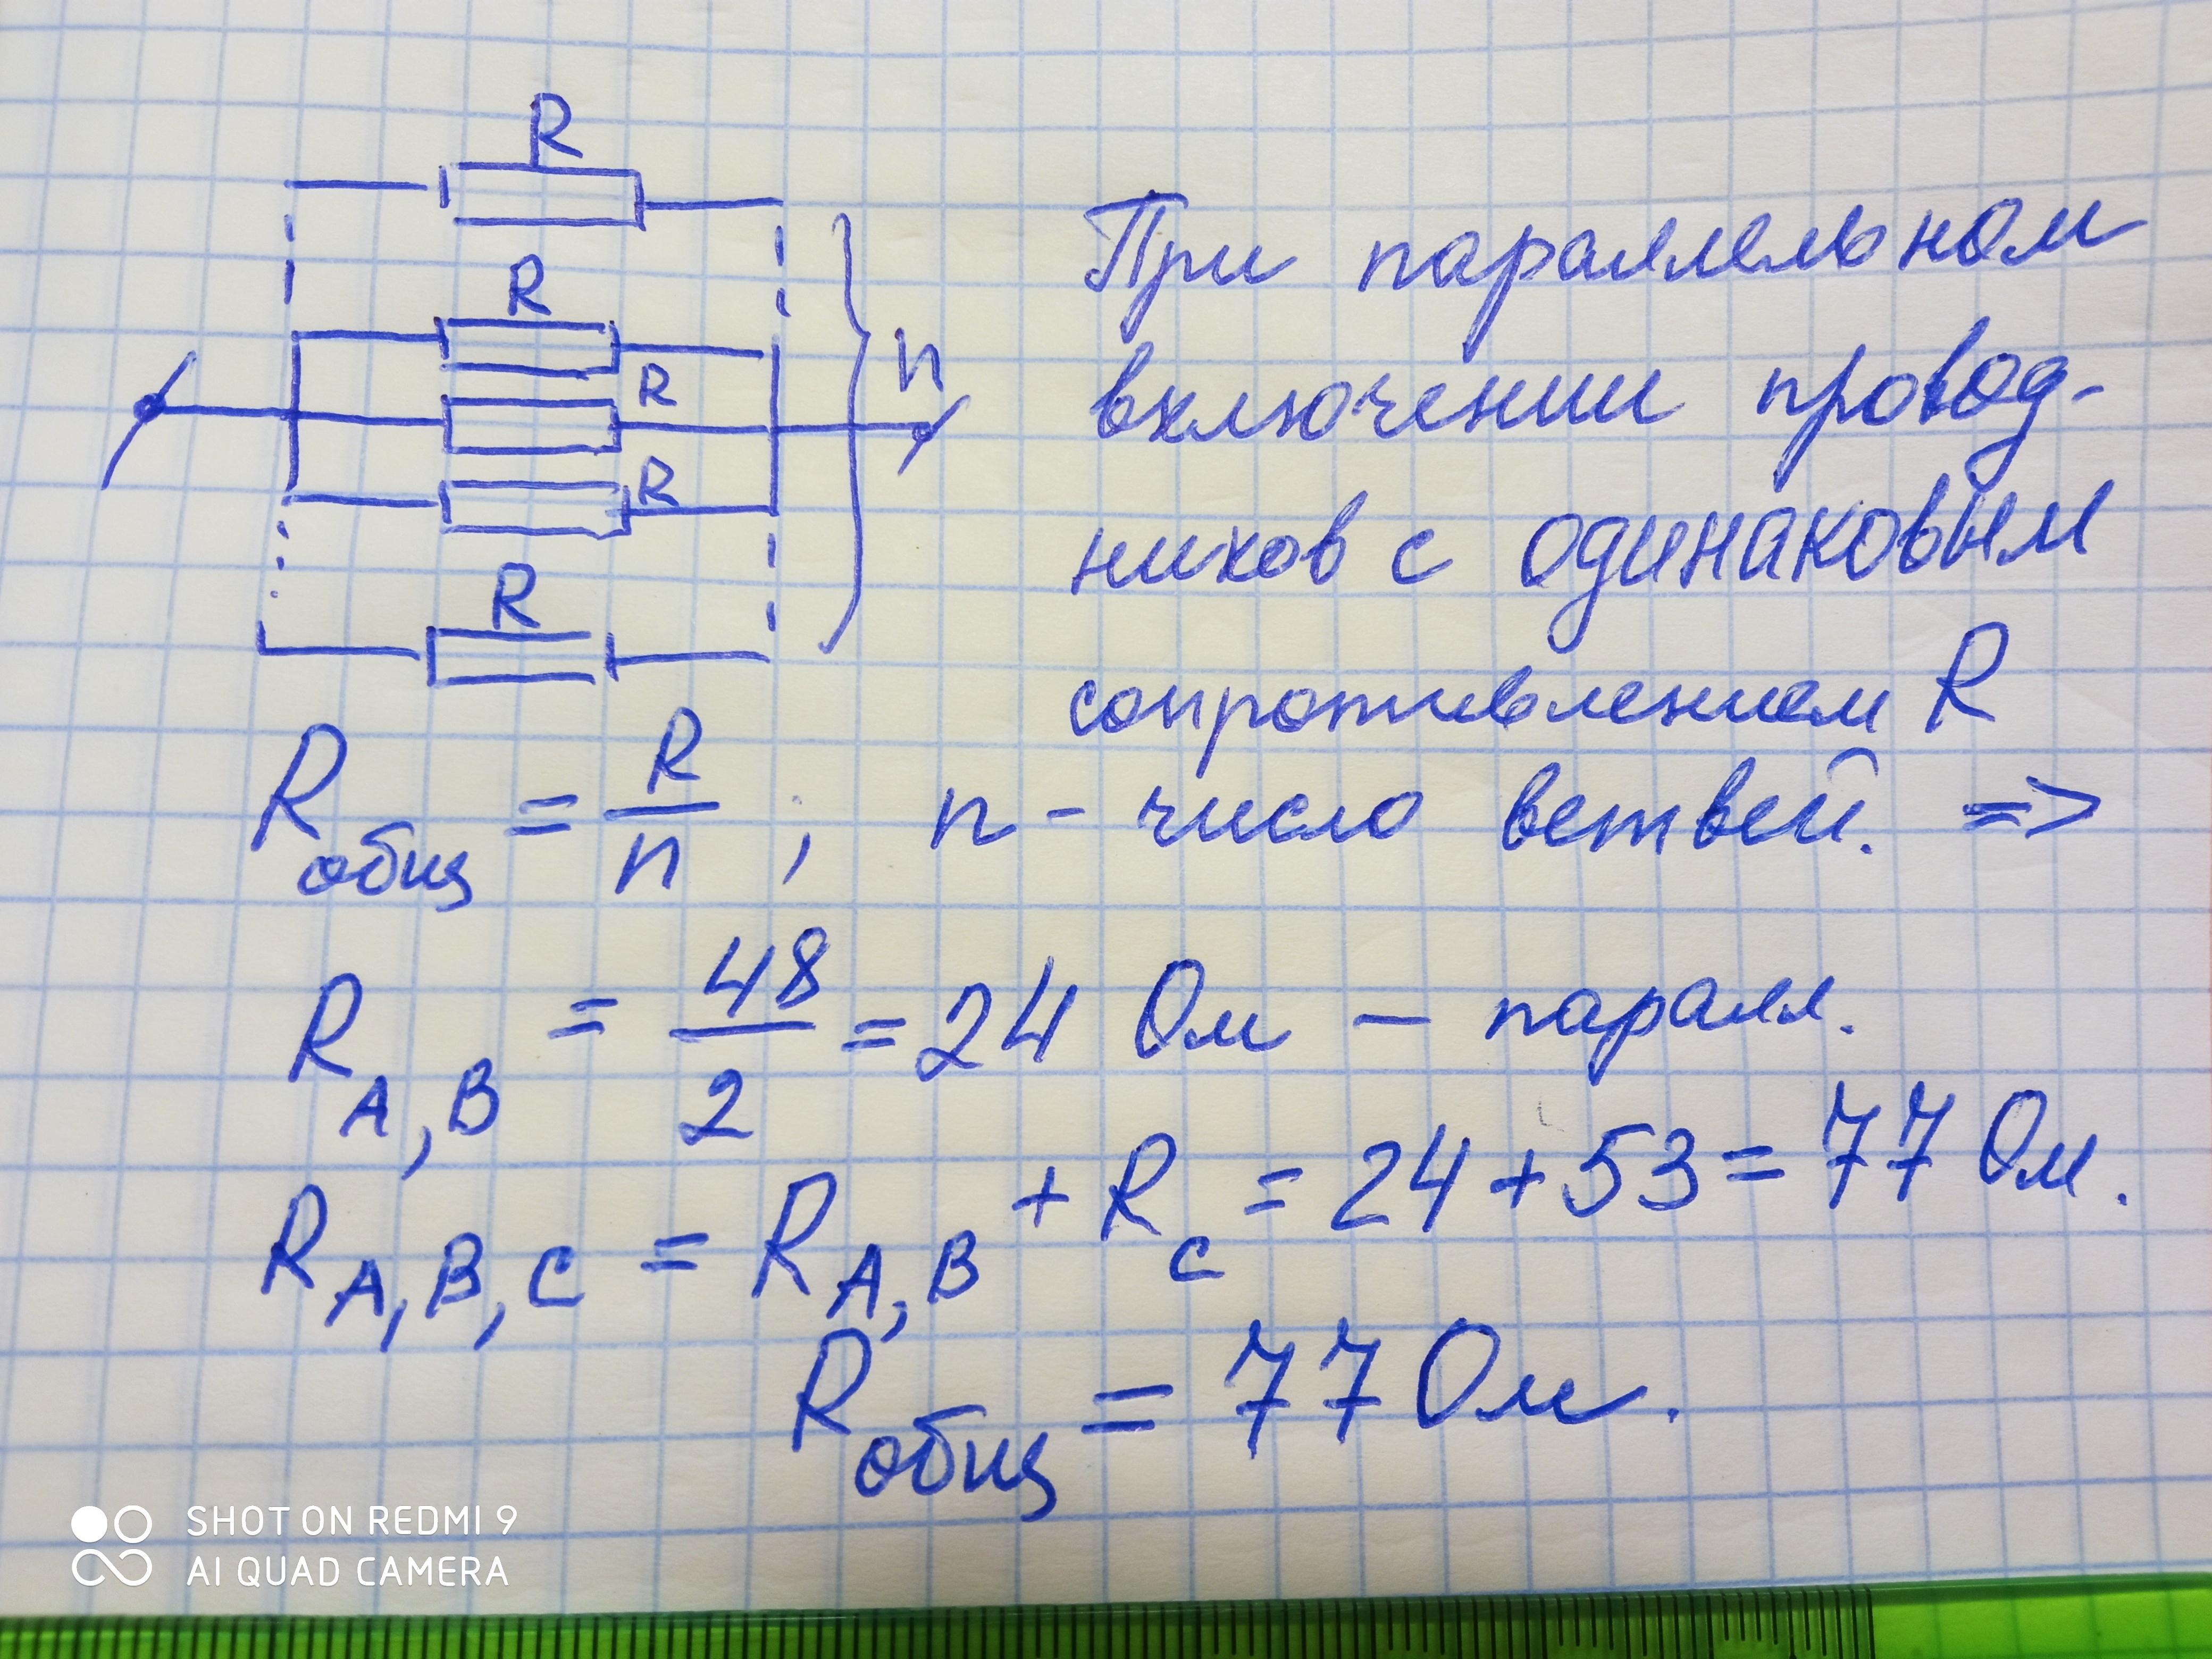 R
R
R
R
R
n
При параллельном
включении провод-
ников с одинаковым
сопротивлением R
Rобщ = R/n ; n - число ветвей. =>
RA,B = 48/2 = 24 Ом — паралл.
RA,B,C = RA,B + RC = 24 + 53 = 77 Ом.
Rобщ = 77 Ом.
SHOT ON REDMI 9
AI QUAD CAMERA